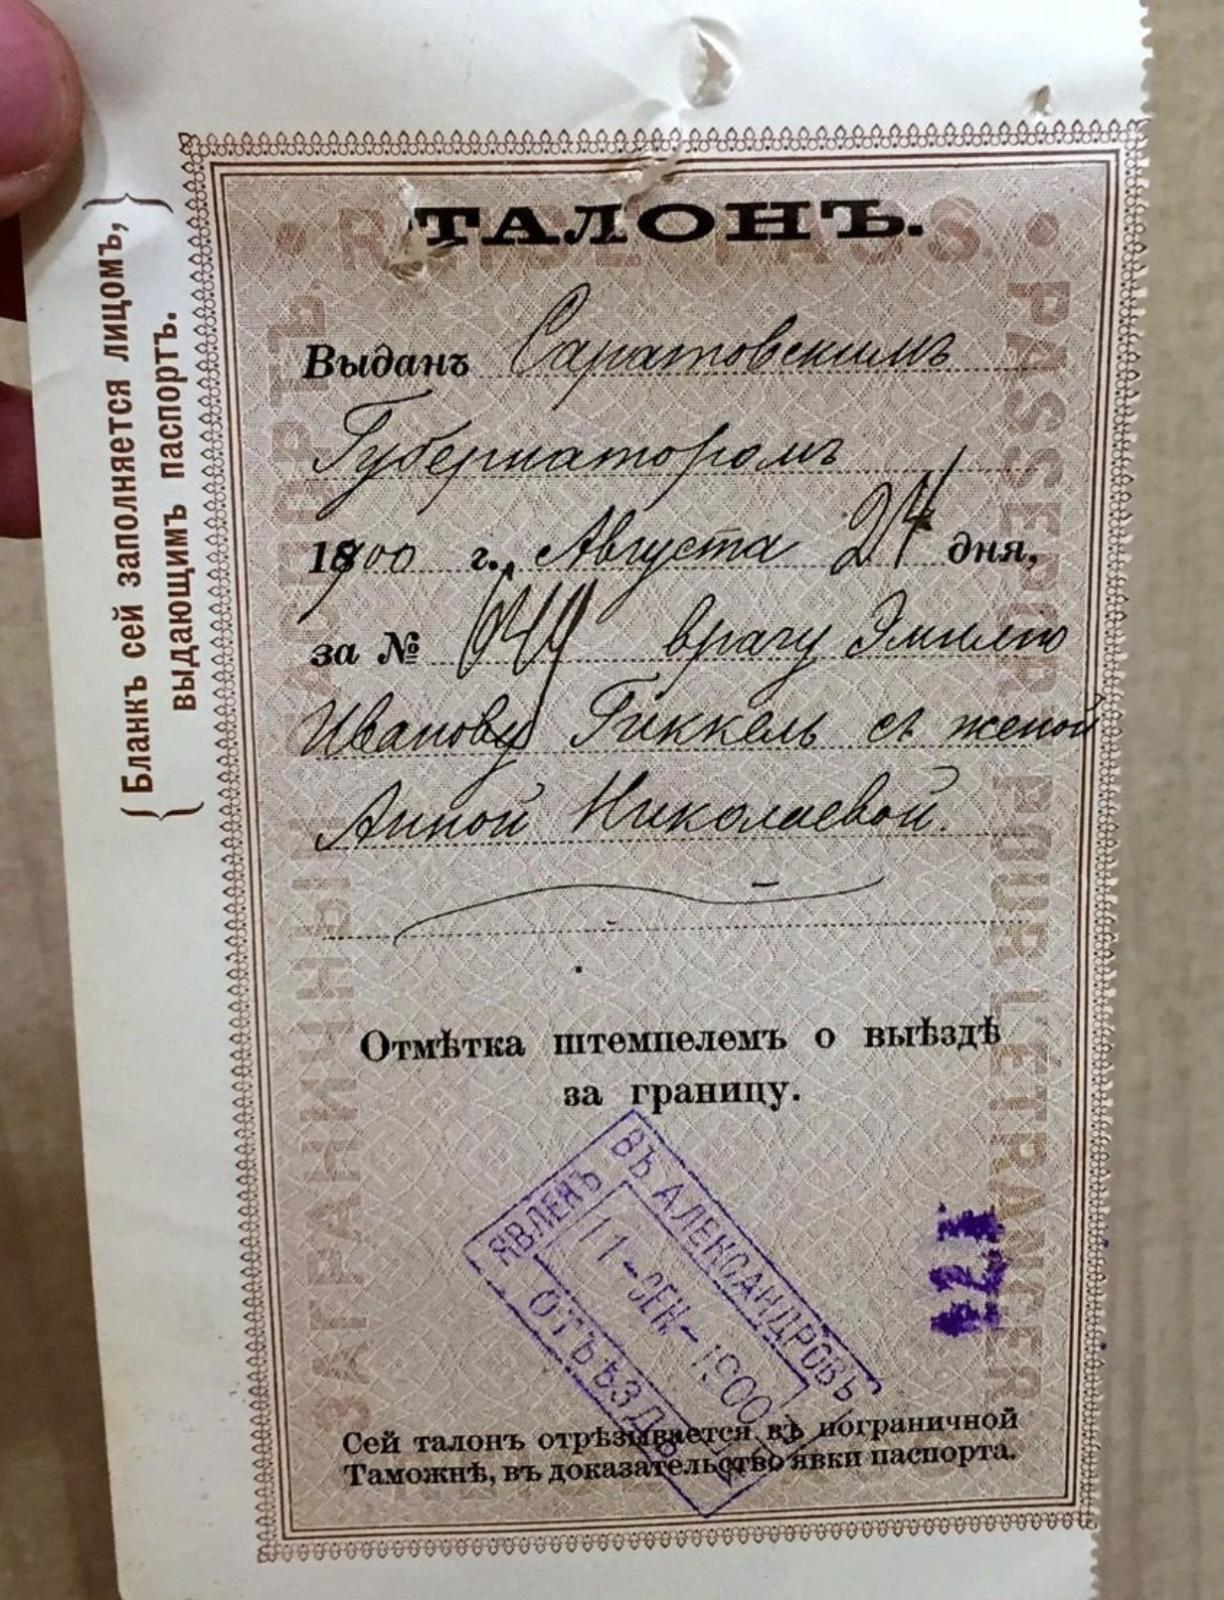 ТАЛОНЪ.
Выданъ Саратовскимъ
Губернаторомъ
1900 г., Августа 24 дня,
за № 644 врачу Эмилю
Иванову Гиккель съ женой
Анной Николаевой.
Отмѣтка штемпелемъ о выѣздѣ
за границу.
ЯВЛЕНЪ
ВЪ АЛЕКСАНДРОВѢ
11-СЕН.-1900
ОТЪѢЗДѢ
Сей талонъ отрѣзывается въ пограничной
Таможнѣ, въ доказательство явки паспорта.
(Бланкъ сей заполняется лицомъ,)
(выдающимъ паспортъ.)
ЗАГРАНИЧНЫЙ ПАСПОРТЪ.
REISE PASS
PASSEPORT POUR L'ÉTRANGER